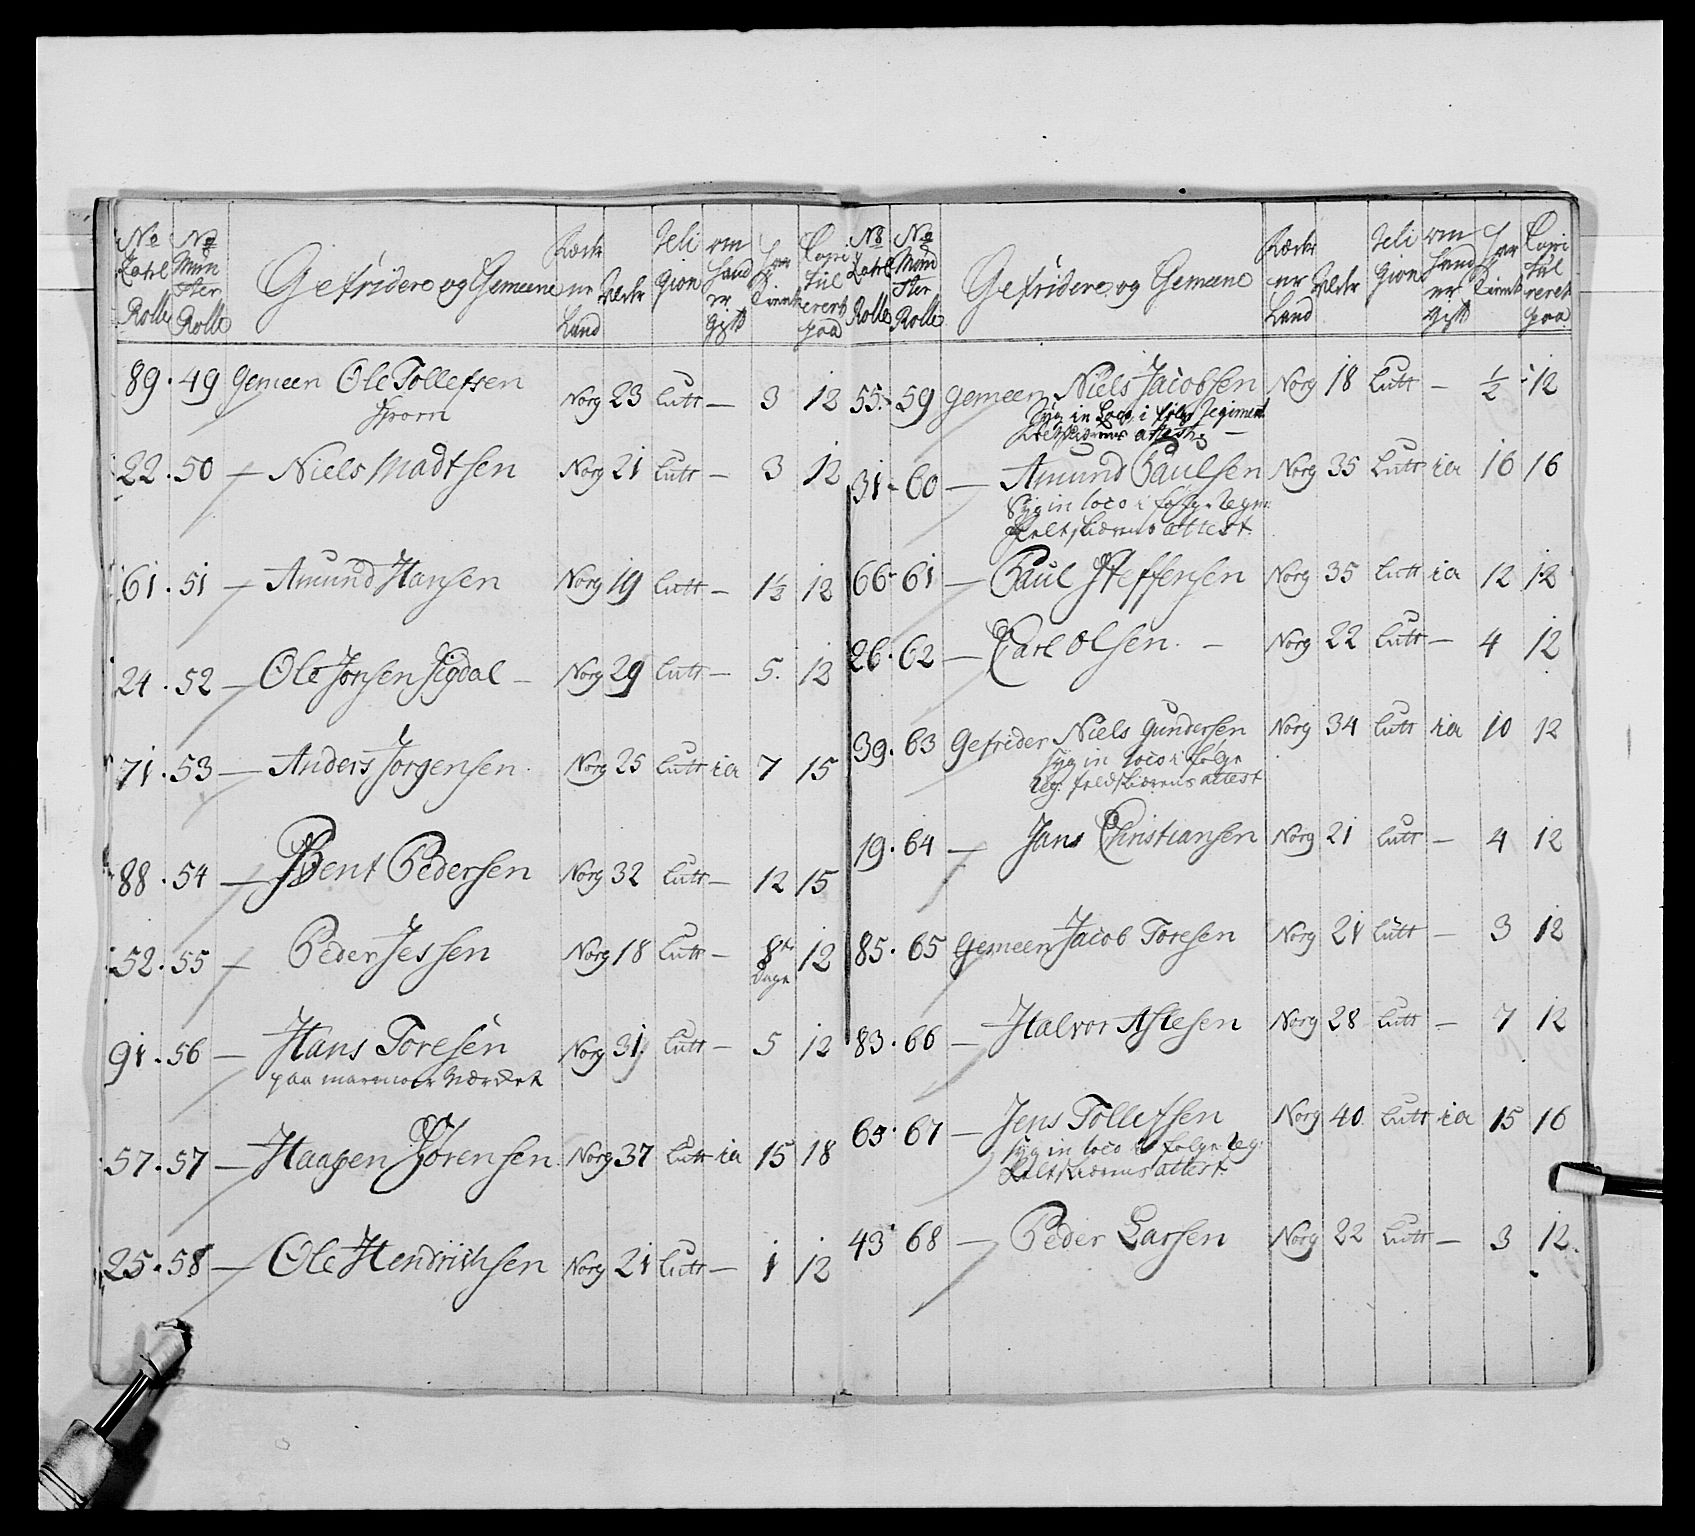 No Zahl Rolle | No Mün ster Rolle | Gefridere og Gemeene | Land | Alder | Reli gion | om hand er gift | har tient | Capi tul erert paa
89. 49 Gemeen Ole Tollefsen Norg 23 Lutt — 3 12
22. 50 — Niels Madtsen Norg 21 Lutt — 3 12
61. 51 — Amund Hansen Norg 19 Lutt — 1½ 12
24. 52 — Ole Jonsen Sigdal — Norg 29 Lutt — 5. 12
71. 53 — Anders Jørgensen. Norg 25 Lutt ia 7 15
88. 54 — Bent Pedersen Norg 32 Lutt — 12 15
52. 55 — Peder Jessen Norg 18 Lutt — 8te 12
Dage
91. 56 — Hans Toresen Norg 31 Lutt — 5 12
paa marmoer Værcket
57. 57 — Haagen Sørensen Norg 37 Lutt ia 15 18
25. 58 — Ole Hendrichsen Norg 21 Lutt — 1 12
No Zahl Rolle | No Mün ster Rolle | Gefridere og Gemeene | er Land | Alder | Reli gion | om hand er gift | har tient | Capi tul reret paa
55. 59 Gemeen Niels Jacobsen Norg 18 Lutt — ½ 12
Syg in Loco i følge Regiment
Feltskiærens attest
31. 60 — Amund Paulsen Norg 35 Lutt ia 16 16
Syg in loco i følge Regm:
Feltskiærens attest.
66. 61 — Paul Steffensen Norg 35 Lutt ia 12 12
26. 62 — Carl Olsen. — Norg 22 Lutt — 4 12
39. 63 Gefrider Niels Gundersen Norg 34 Lutt ia 10 12
Syg in loco i følge
Reg: feldskiærens attest
19. 64 — Jans Christiansen Norg 21 Lutt — 4 12
85. 65 Gemeen Jacob Toresen Norg 21 Lutt — 3 12
83. 66 — Halvor Aslesen Norg 28 Lutt — 7 12
65. 67 — Jens Tollefsen Norg 40 Lutt ia 15 16
Syg in loco i følge Reg:
Feltskiærens attest.
43. 68 — Peder Larsen Norg 22 Lutt — 3 12.